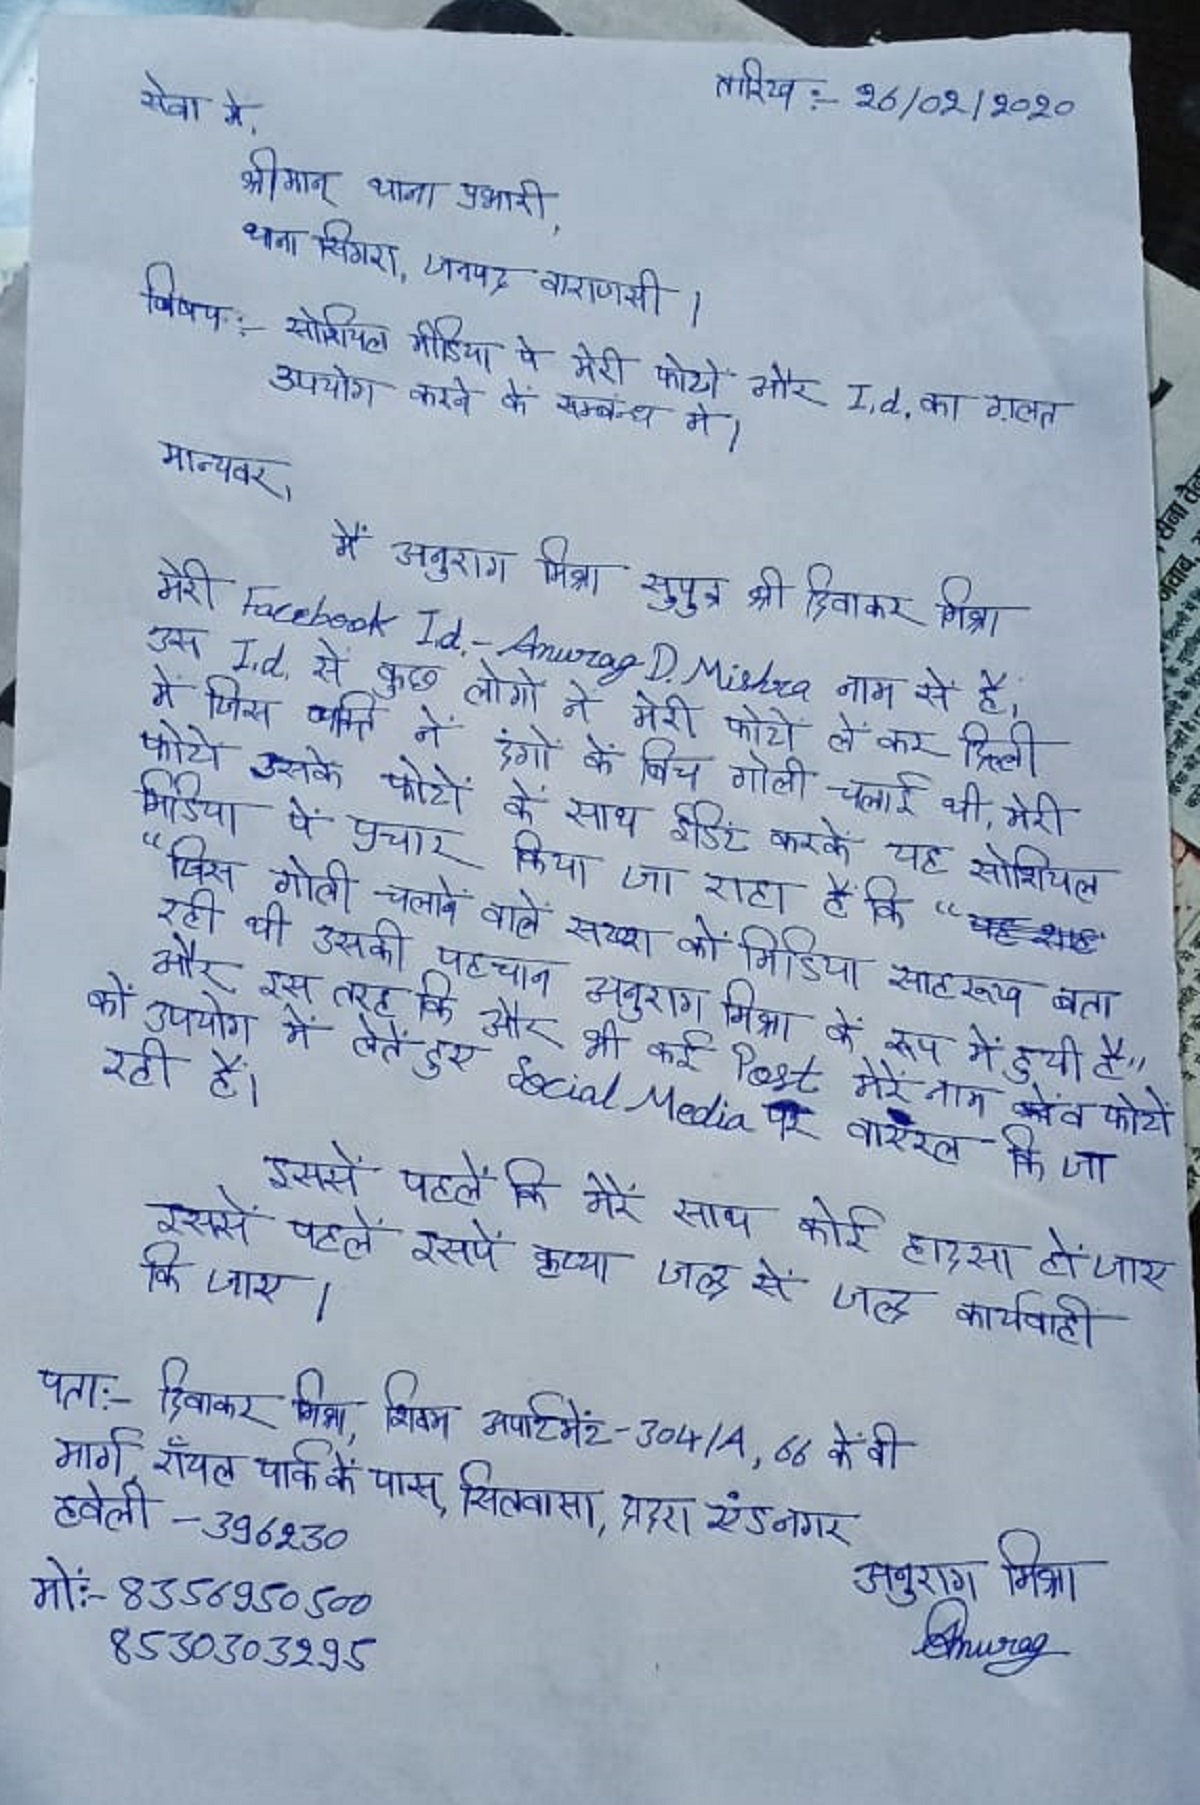 तारिख :- 26/02/2020
सेवा में,
श्रीमान् थाना प्रभारी,
थाना सिगरा, जनपद वाराणसी।
विषय :- सोशियल मीडिया पे मेरी फोटों और I.d. का ग़लत
उपयोग करने कें सम्बन्ध में।
मान्यवर,
मैं अनुराग मिश्रा सुपुत्र श्री दिवाकर मिश्रा
मेरी Facebook I.d.- Anurag D. Mishra नाम सें है,
उस I.d. सें कुछ लोगों नें मेरी फोटों लें कर दिल्ली
में जिस व्यक्ति नें दंगों कें बिच गोली चलाई थी, मेरी
फोटो उसके फोटों कें साथ ईडिट करकें यह सोशियल
मिडिया पें प्रचार किया जा राहा हैं कि "
"जिस गोली चलानें वालें सख्श कों मिडिया साहरूख बता
रही थी उसकी पहचान अनुराग मिश्रा कें रूप में हुयी है"
और इस तरह कि और भी कई Post मेरें नाम व फोटों
कों उपयोग में लेतें हुए Social Media पर वायरल कि जा
रही हैं।
इससें पहलें कि मेरें साथ कोई हादसा हों जाए
इससें पहलें इसपें कृप्या जल्द सें जल्द कार्यवाही
कि जाए।
पता:- दिवाकर मिश्रा, शिवम अपार्टमेंट-304/A, 66 कें वी
मार्ग, रॉयल पार्क कें पास, सिलवासा, दादरा एंड नगर
हवेली - 396230
मों:- 8356950500
8530303295
अनुराग मिश्रा
Anurag